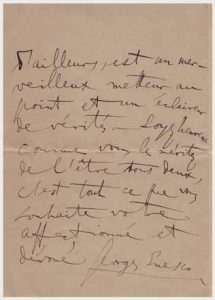 D'ailleurs, est un mer-
veilleux metteur au
point et un éclaireur
de vérités — Soyez heureux
comme vous le méritez
de l'être tous deux,
c'est tout ce que vous
souhaite votre
affectionné et
dévoué Georges Enesco